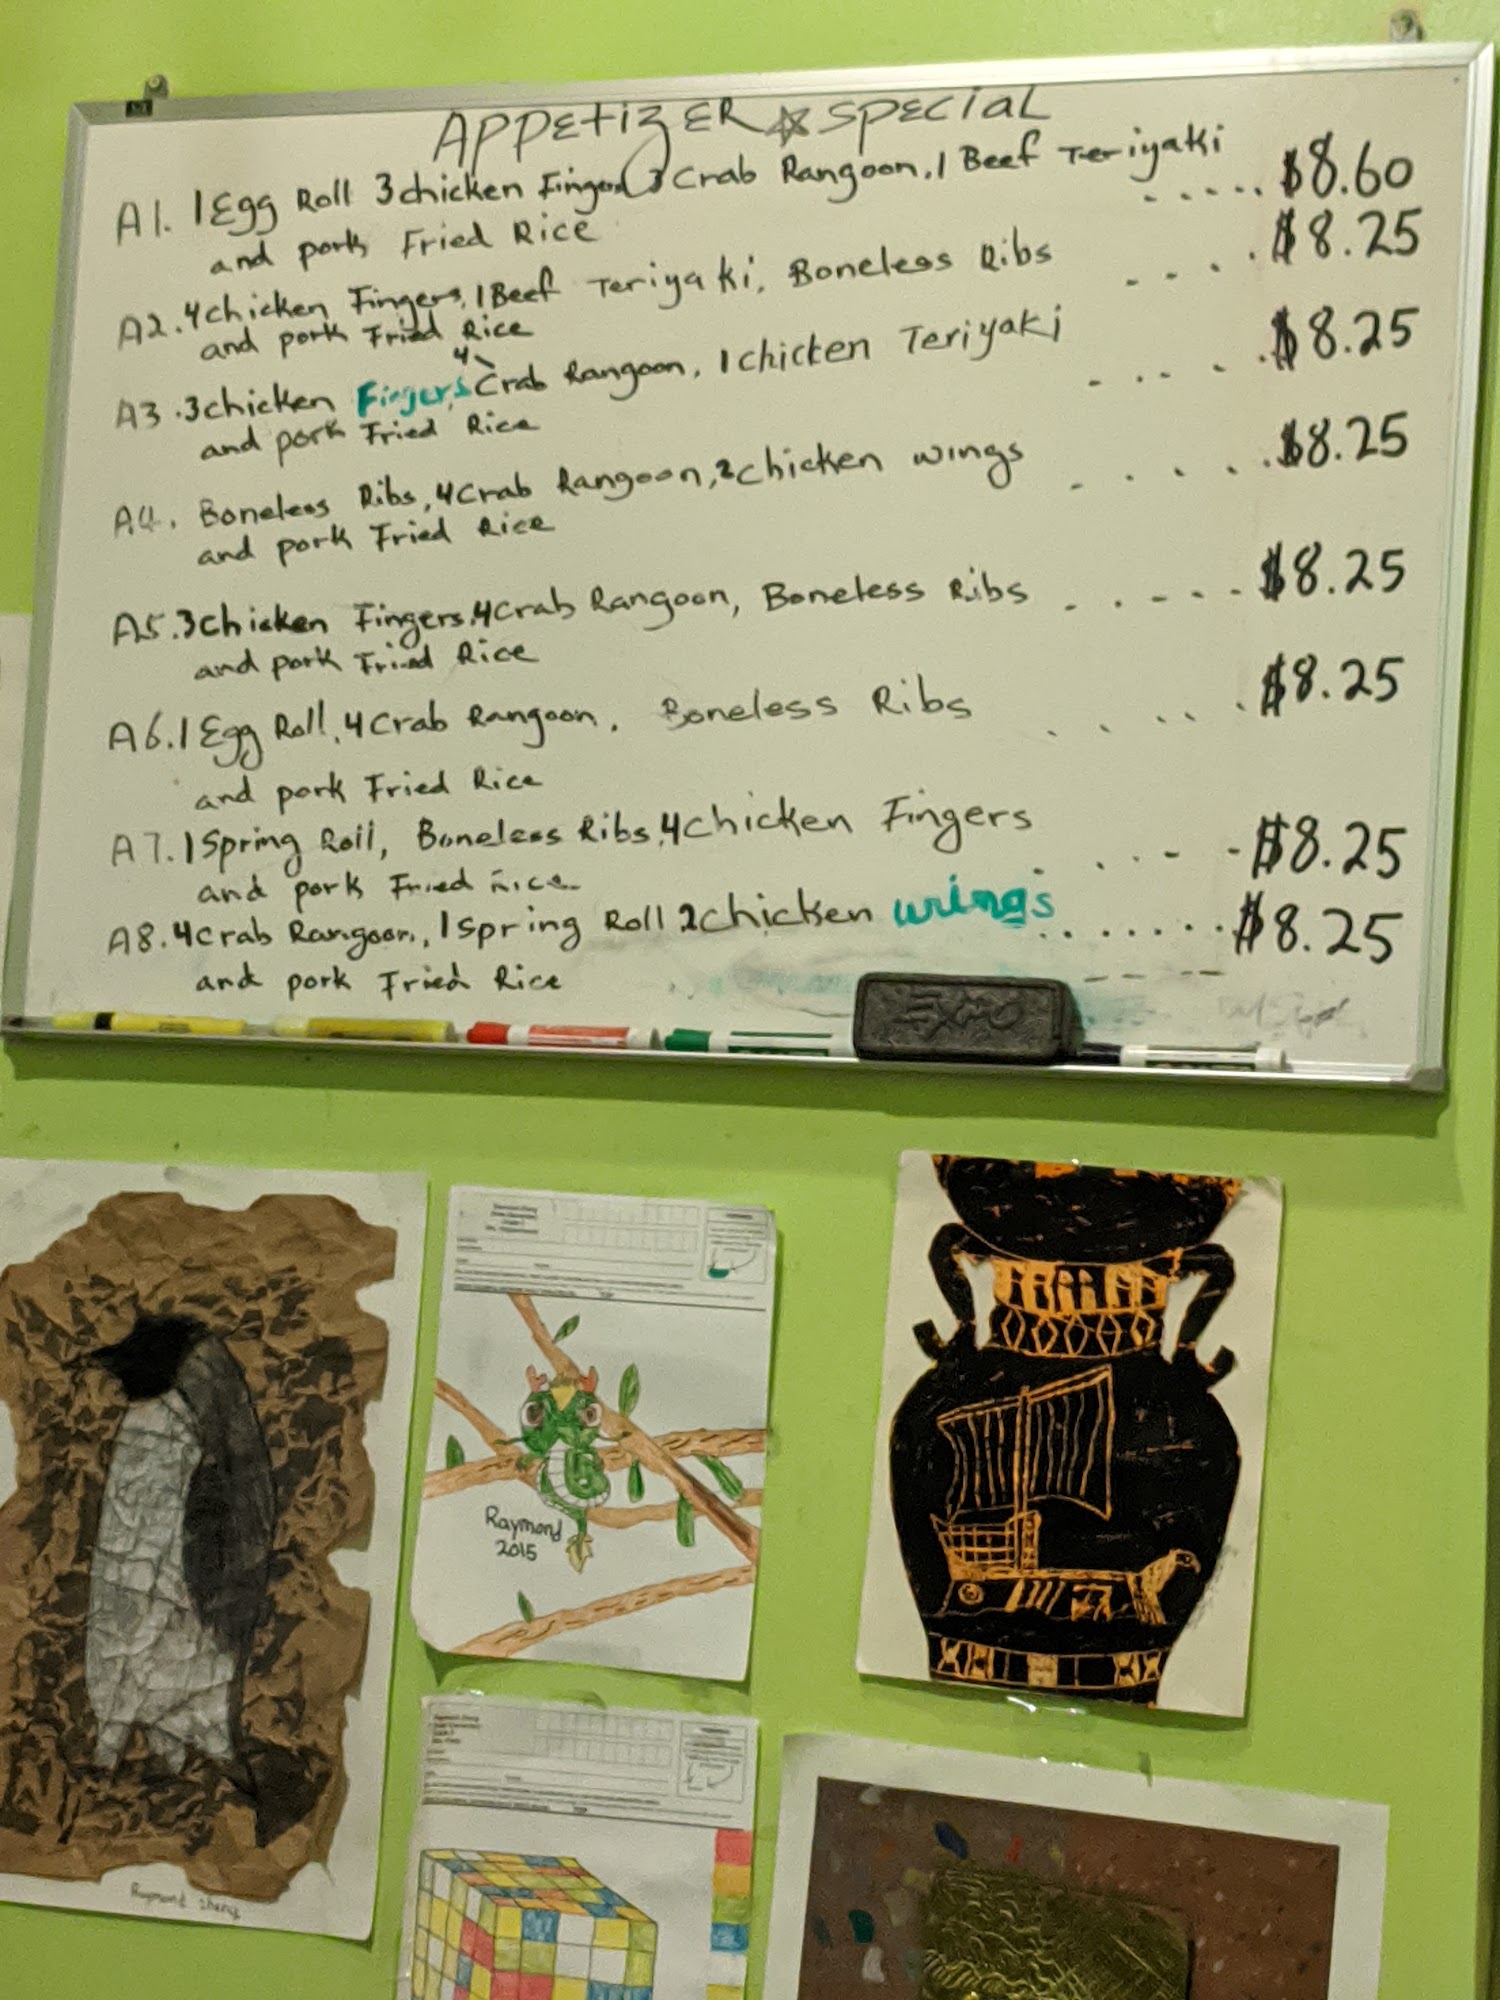 APPEtizER ☆ SPECiaL
A1. 1 Egg Roll 3 chicken Fingers 3 Crab Rangoon, 1 Beef Teriyaki ..... $8.60
and pork Fried Rice
A2. 4 chicken Fingers, 1 Beef Teriyaki, Boneless Ribs .... $8.25
and pork Fried Rice
A3. 3 chicken Fingers, 4 Crab Rangoon, 1 chicken Teriyaki ..... $8.25
and pork Fried Rice
A4. Boneless Ribs, 4 Crab Rangoon, 2 chicken wings ..... $8.25
and pork Fried Rice
A5. 3 chicken Fingers, 4 Crab Rangoon, Boneless Ribs ...... $8.25
and pork Fried Rice
A6. 1 Egg Roll, 4 Crab Rangoon, Boneless Ribs ..... $8.25
and pork Fried Rice
A7. 1 Spring Roll, Boneless Ribs, 4 chicken Fingers ..... $8.25
and pork Fried Rice
A8. 4 Crab Rangoon, 1 Spring Roll 2 chicken wings ....... $8.25
and pork Fried Rice
EXPO
Raymond
2015
Raymond